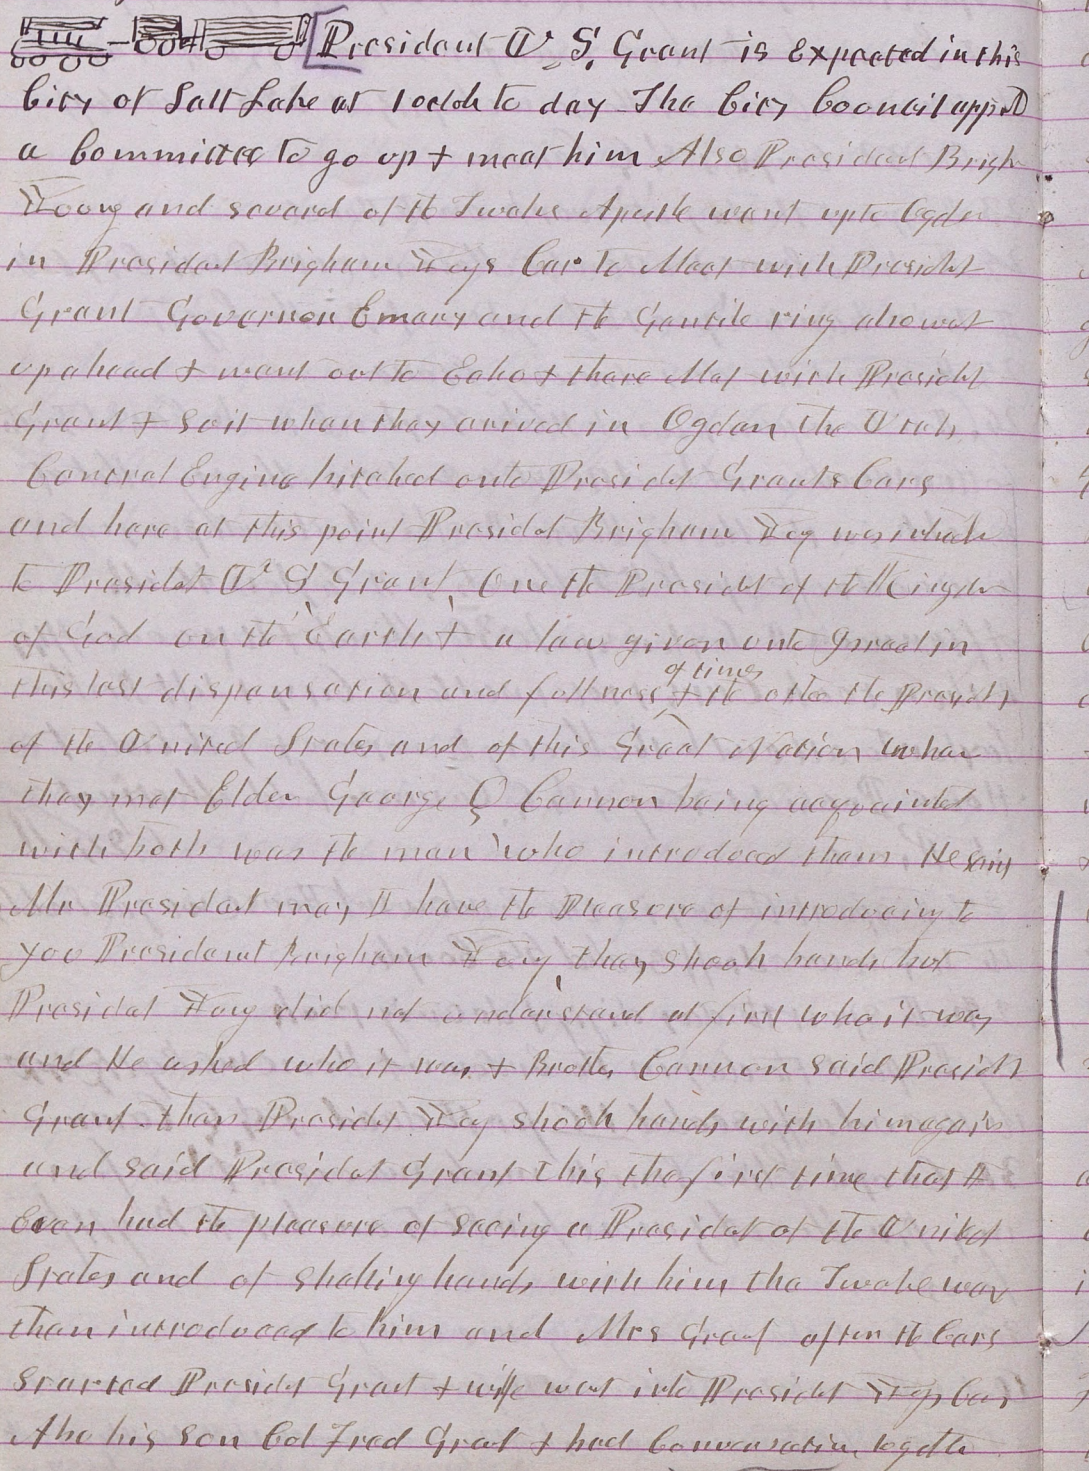 President U. S. Grant is Expected in this
City of Salt Lake at 1 oclok to day The City Councilappt
a Committee to go up + meet him Also President Brigh
Young and several of the Twelve Apostle went upto Ogden
in President Brigham Youngs Car to Meet with President
Grant Governor Emery and the Gentile ring also wet
up ahead + went out to Echo + there Met with President
Grant + Soit when they arived in Ogden the Utah
Central Engine hitched onto President Grants Cars
and here at this point President Brigham Young was
to President U S Grant, One the President of the Kingdom
of God on the Earth + a law given unto Israel in
this last dispensation and fullness of times + the other the President
of the United States and of this Great Nation when
they met Elder George Q Cannon being acquainted
with both was the man who introduced them He said
Mr President may I have the Pleasure of introducing to
you President Brigham Young they shook hands but
President Young did not understand at first who it was
and He asked who it was + Brother Cannon said President
Grant. then President Young shook hands with him again
and said President Grant this the first time that I
Ever had the pleasure of seeing a President of the United
States and of Shaking hands with him the Twelve war
then introduced to him and Mrs Grant after the Cars
Started President Grant + wife went into President Youngs Car
Also his Son Col Fred Grant + had Conversation togethe